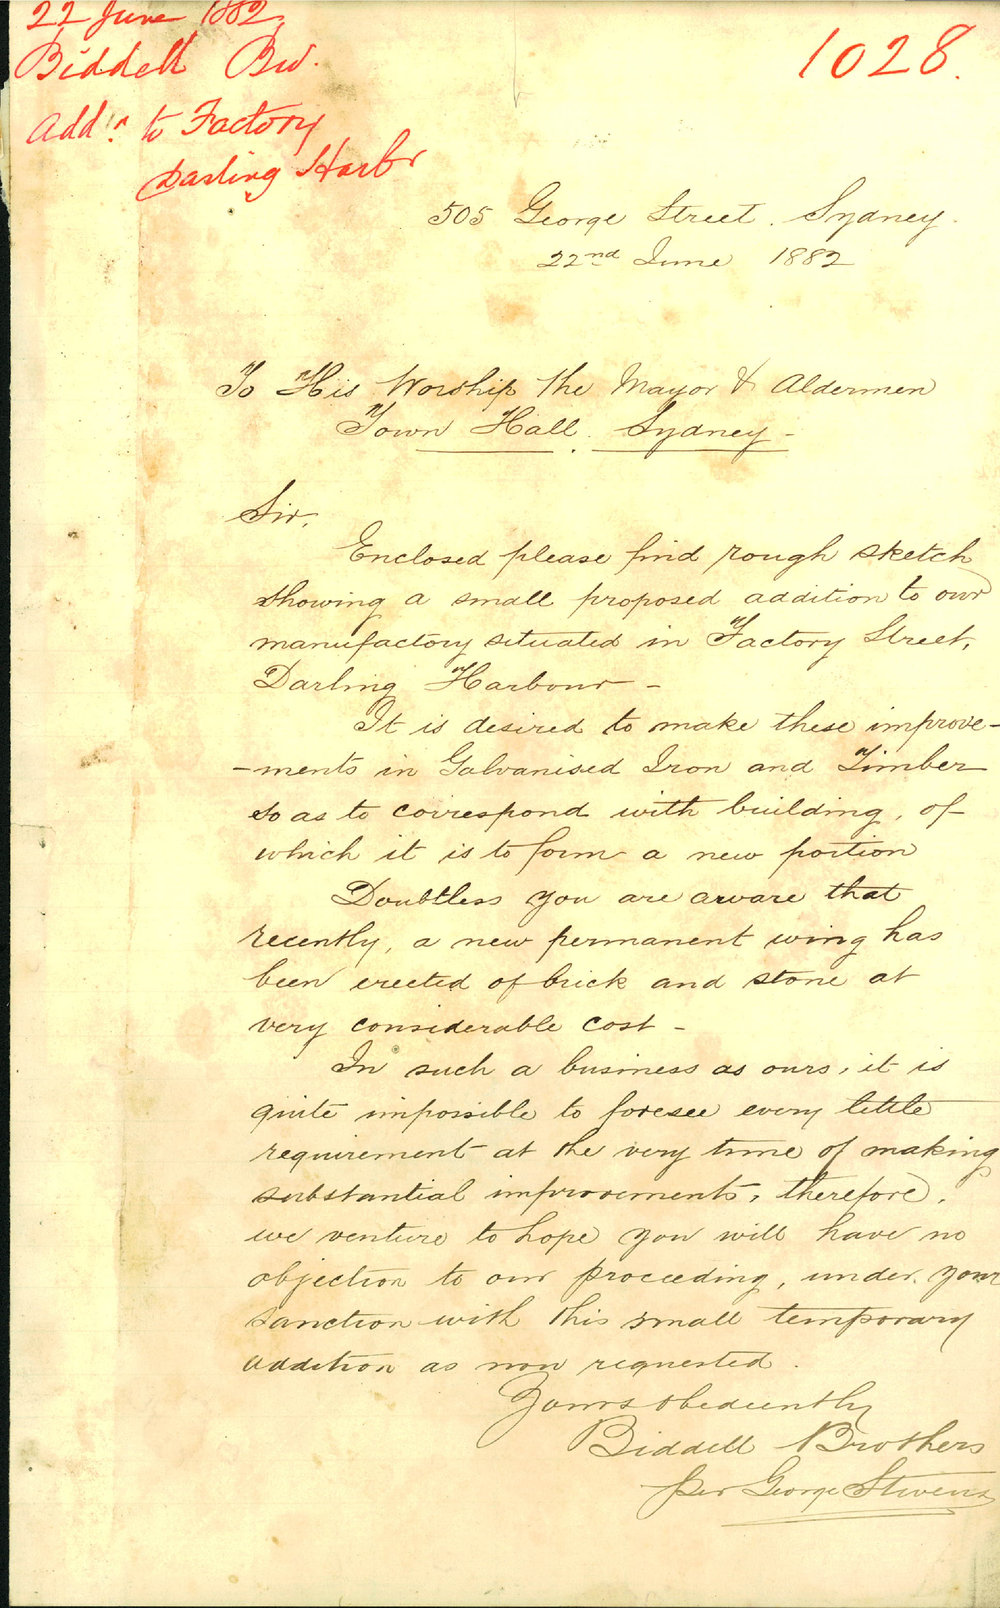 22 June 1882
Biddell Bro.
Addn. to Factory
Darling Harbr
1028.
505 George Street. Sydney.
22nd June 1882
To His Worship the Mayor & Aldermen
Town Hall. Sydney-
Sir,
Enclosed please find rough sketch
showing a small proposed addition to our
manufactory situated in Factory Street,
Darling Harbour-
It is desired to make these improve-
-ments in Galvanised Iron and Timber
so as to correspond with building, of
which it is to form a new portion
Doubtless you are aware that
recently, a new permanent wing has
been erected of brick and stone at
very considerable cost-
In such a business as ours, it is
quite impossible to foresee every little
requirement at the very time of making
substantial improvements, therefore,
we venture to hope you will have no
objection to our proceeding, under your
sanction with this small temporary
addition as now requested.
Yours obediently
Biddell Brothers
per George Stevens